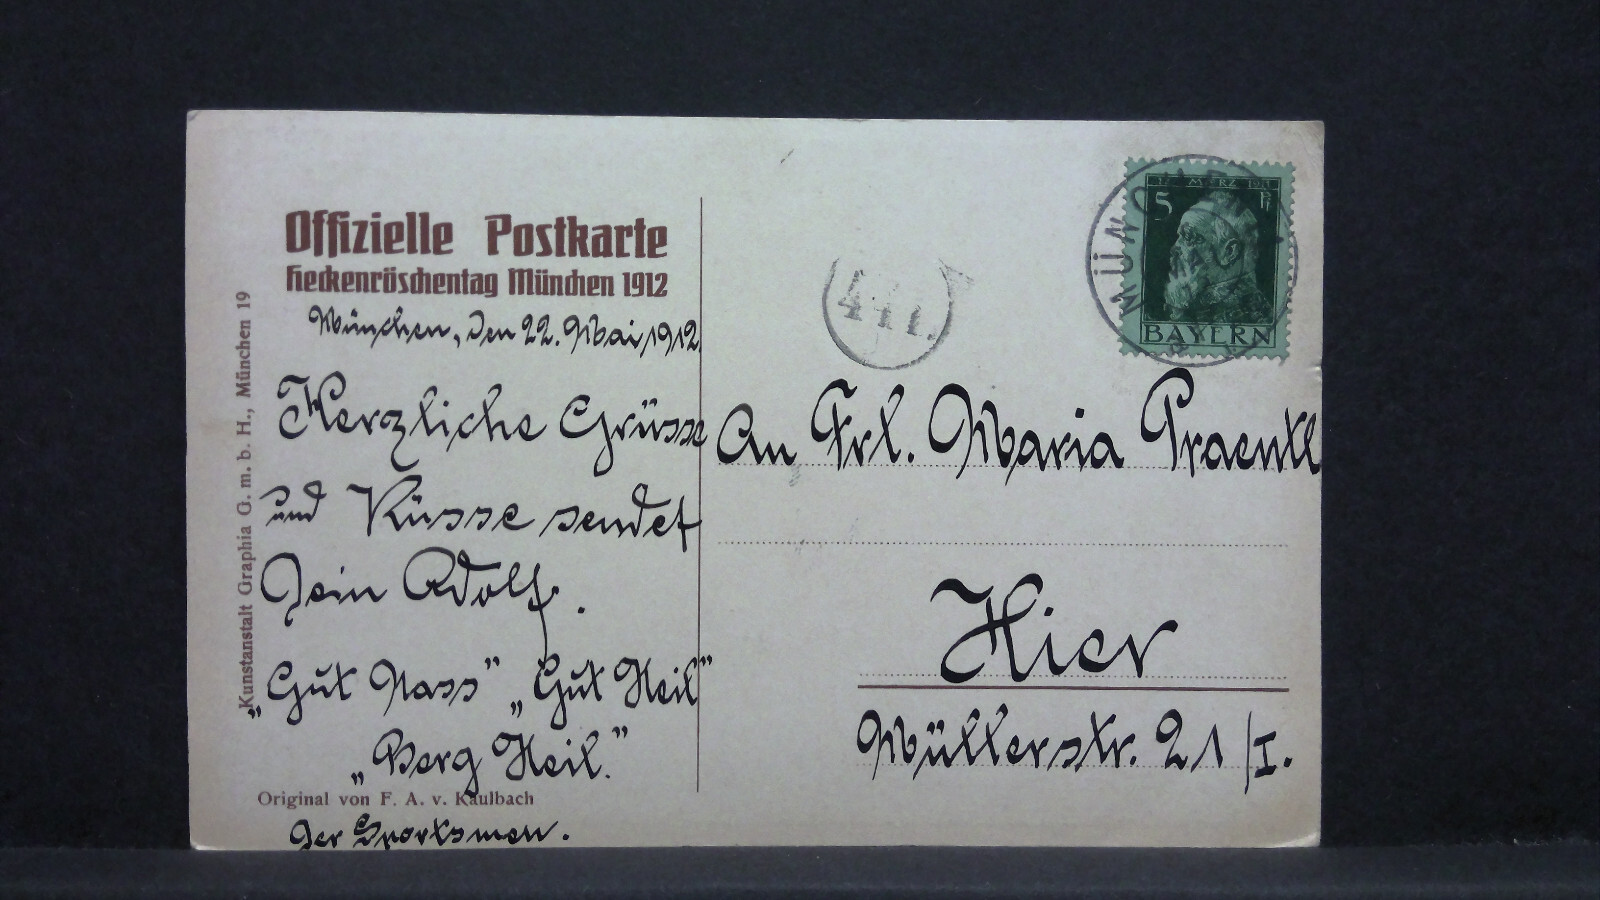 Offizielle Postkarte
Heckenröschentag München 1912
München, den 22. Mai 1912.
Herzliche Grüsse
und Küsse sendet
Dein Adolf.
„Gut Nass” „Gut Heil”
„Berg Heil.”
Original von F. A. v. Kaulbach
Der Sportsmen.
Kunstanstalt Graphia G. m. b. H., München 19
MÜNCHEN
12. MÄRZ 1911
5 Pf
BAYERN
An Frl. Maria Praentl
Hier
Müllerstr. 21/I.